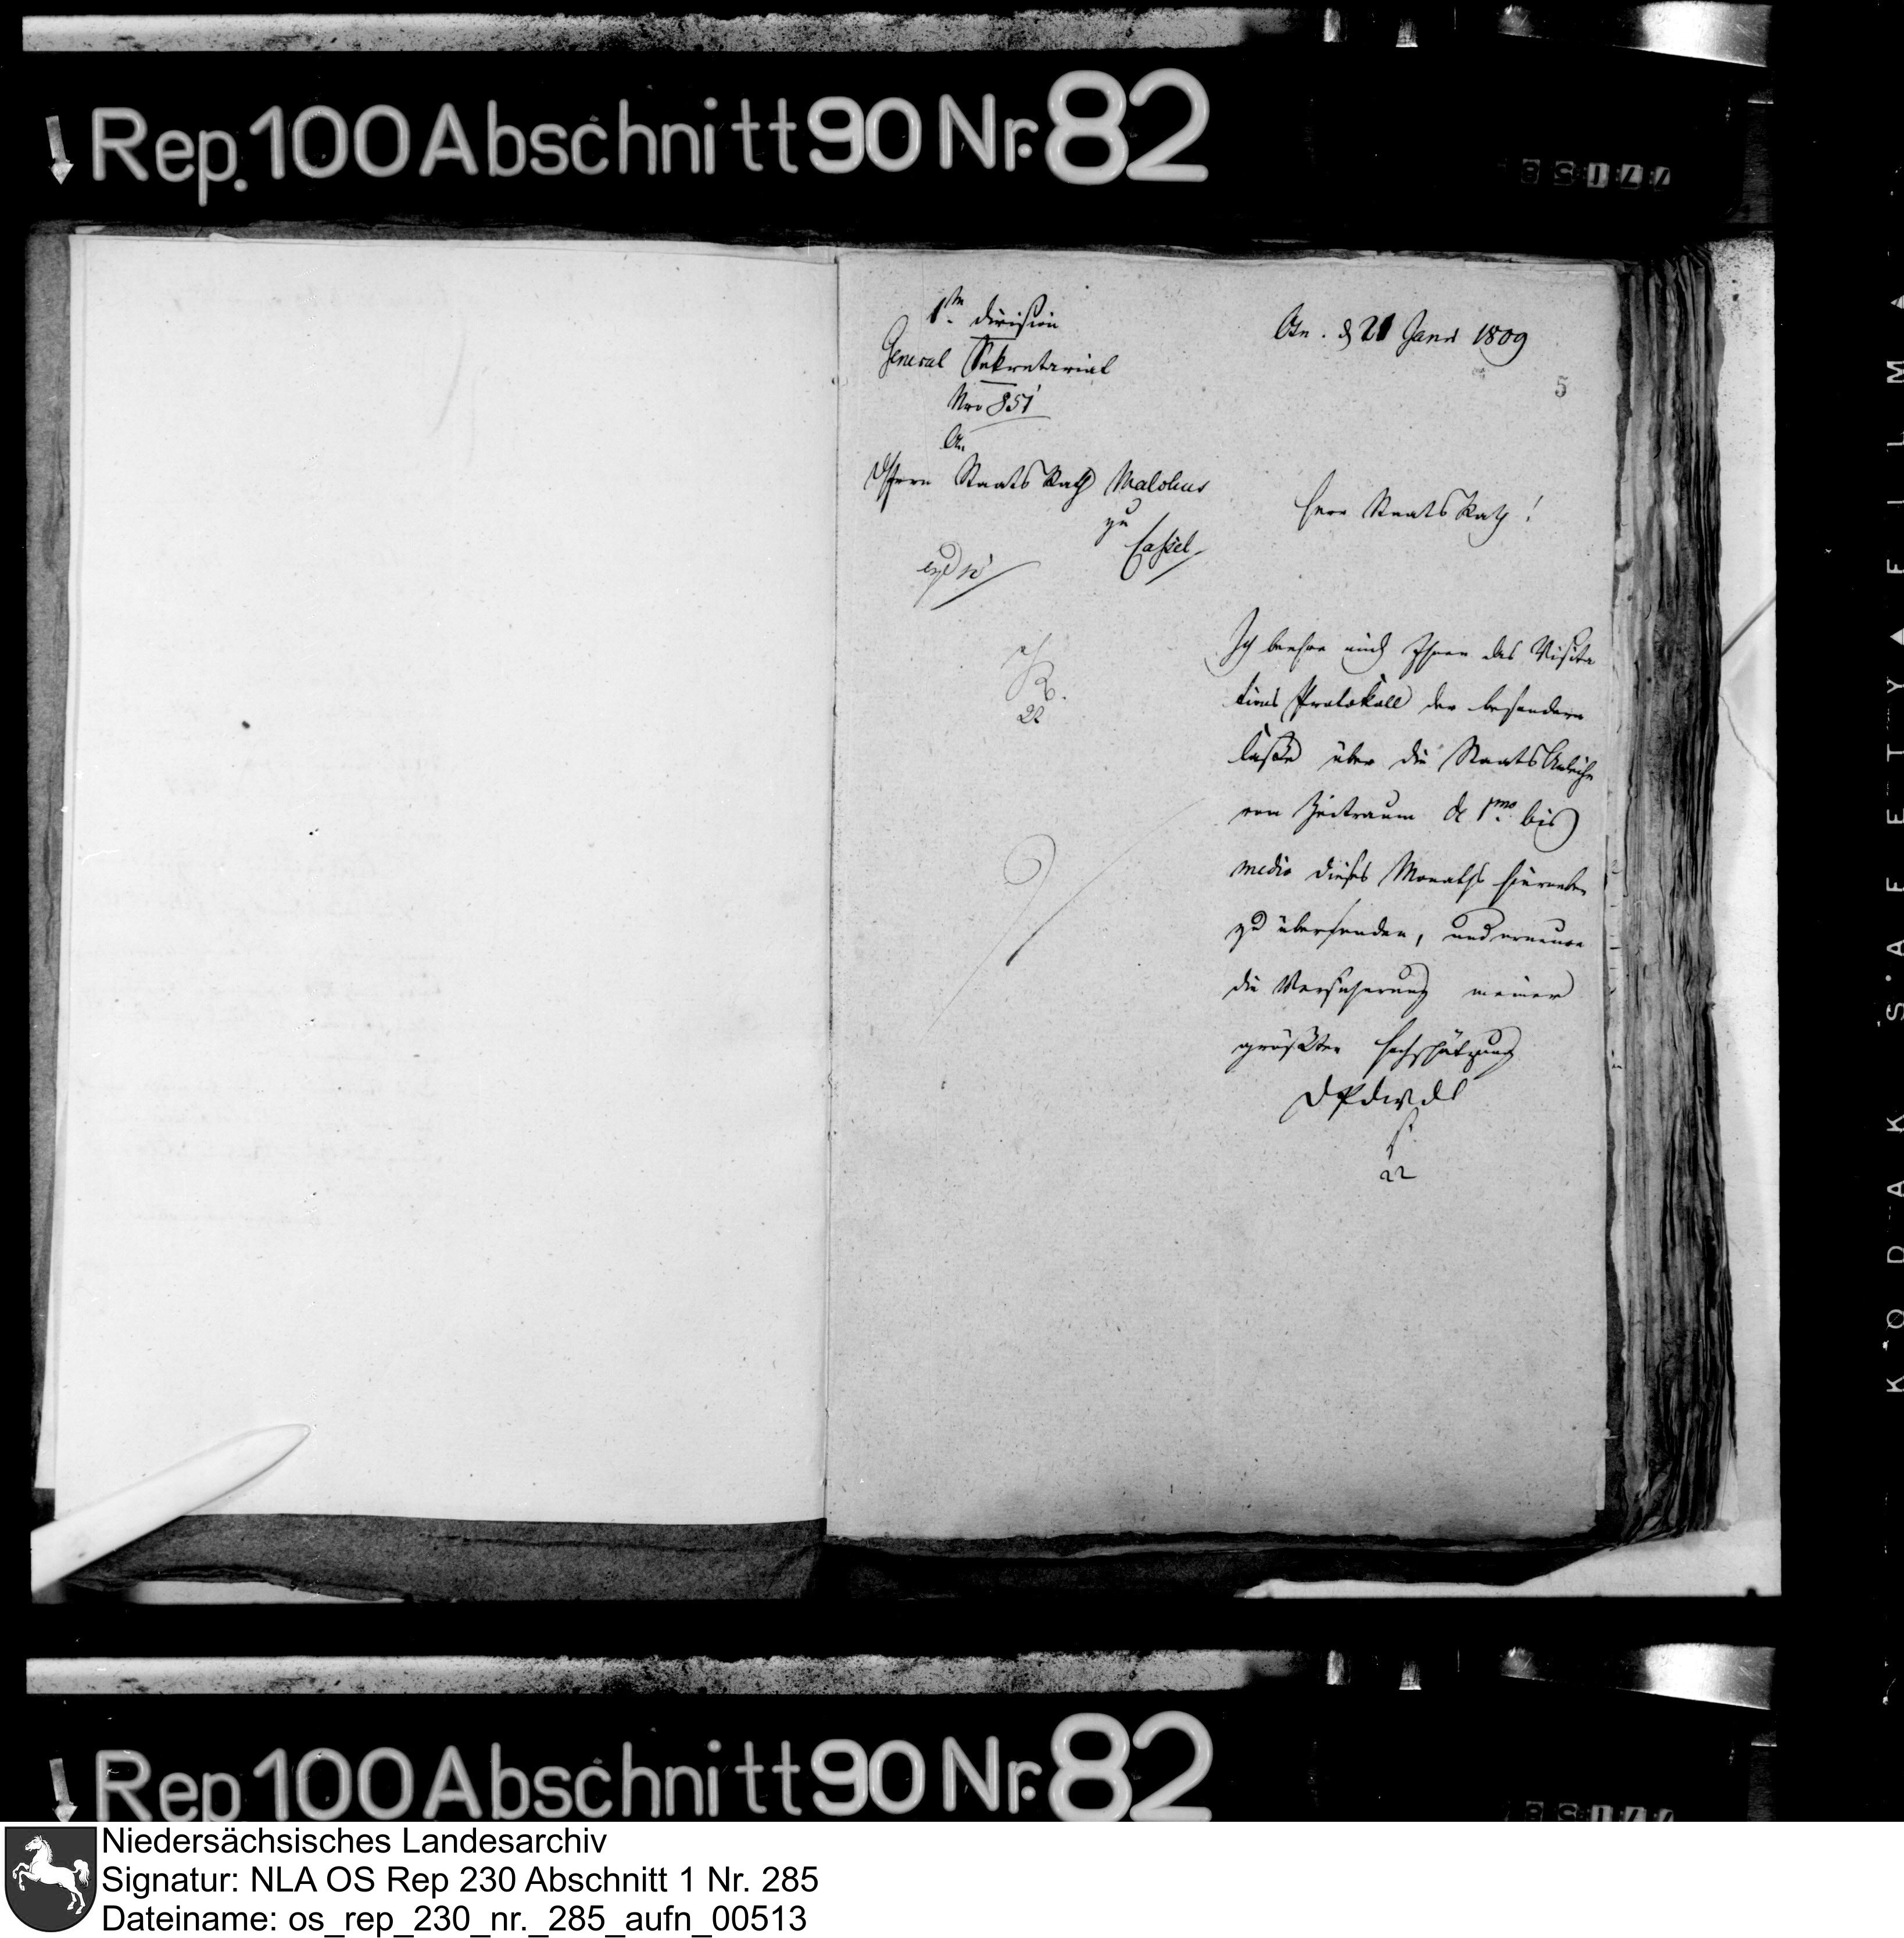 Rep. 100 Abschnitt 90 Nr. 82
1te division
General Sekretariat
Nro 851
An
Herrn Staats Rath Malchus
zu
Cassel
Osn. d 21 Janr 1809
5
Herr Staats Rath!
Ich beehre mich Ihnen das Visita
tions Protokoll der besondern
Casse über die Staats Anleihe
vom Zeitraum de 1mo bis
medio dieses Monaths hierneben
zu übersenden, und erneuere
die Versicherung meiner
größten Hochschätzung
DPdWDl
St
22
R.
22
KODAK SAFETY FILM
Rep 100 Abschnitt 90 Nr. 82
Niedersächsisches Landesarchiv
Signatur: NLA OS Rep 230 Abschnitt 1 Nr. 285
Dateiname: os_rep_230_nr._285_aufn_00513